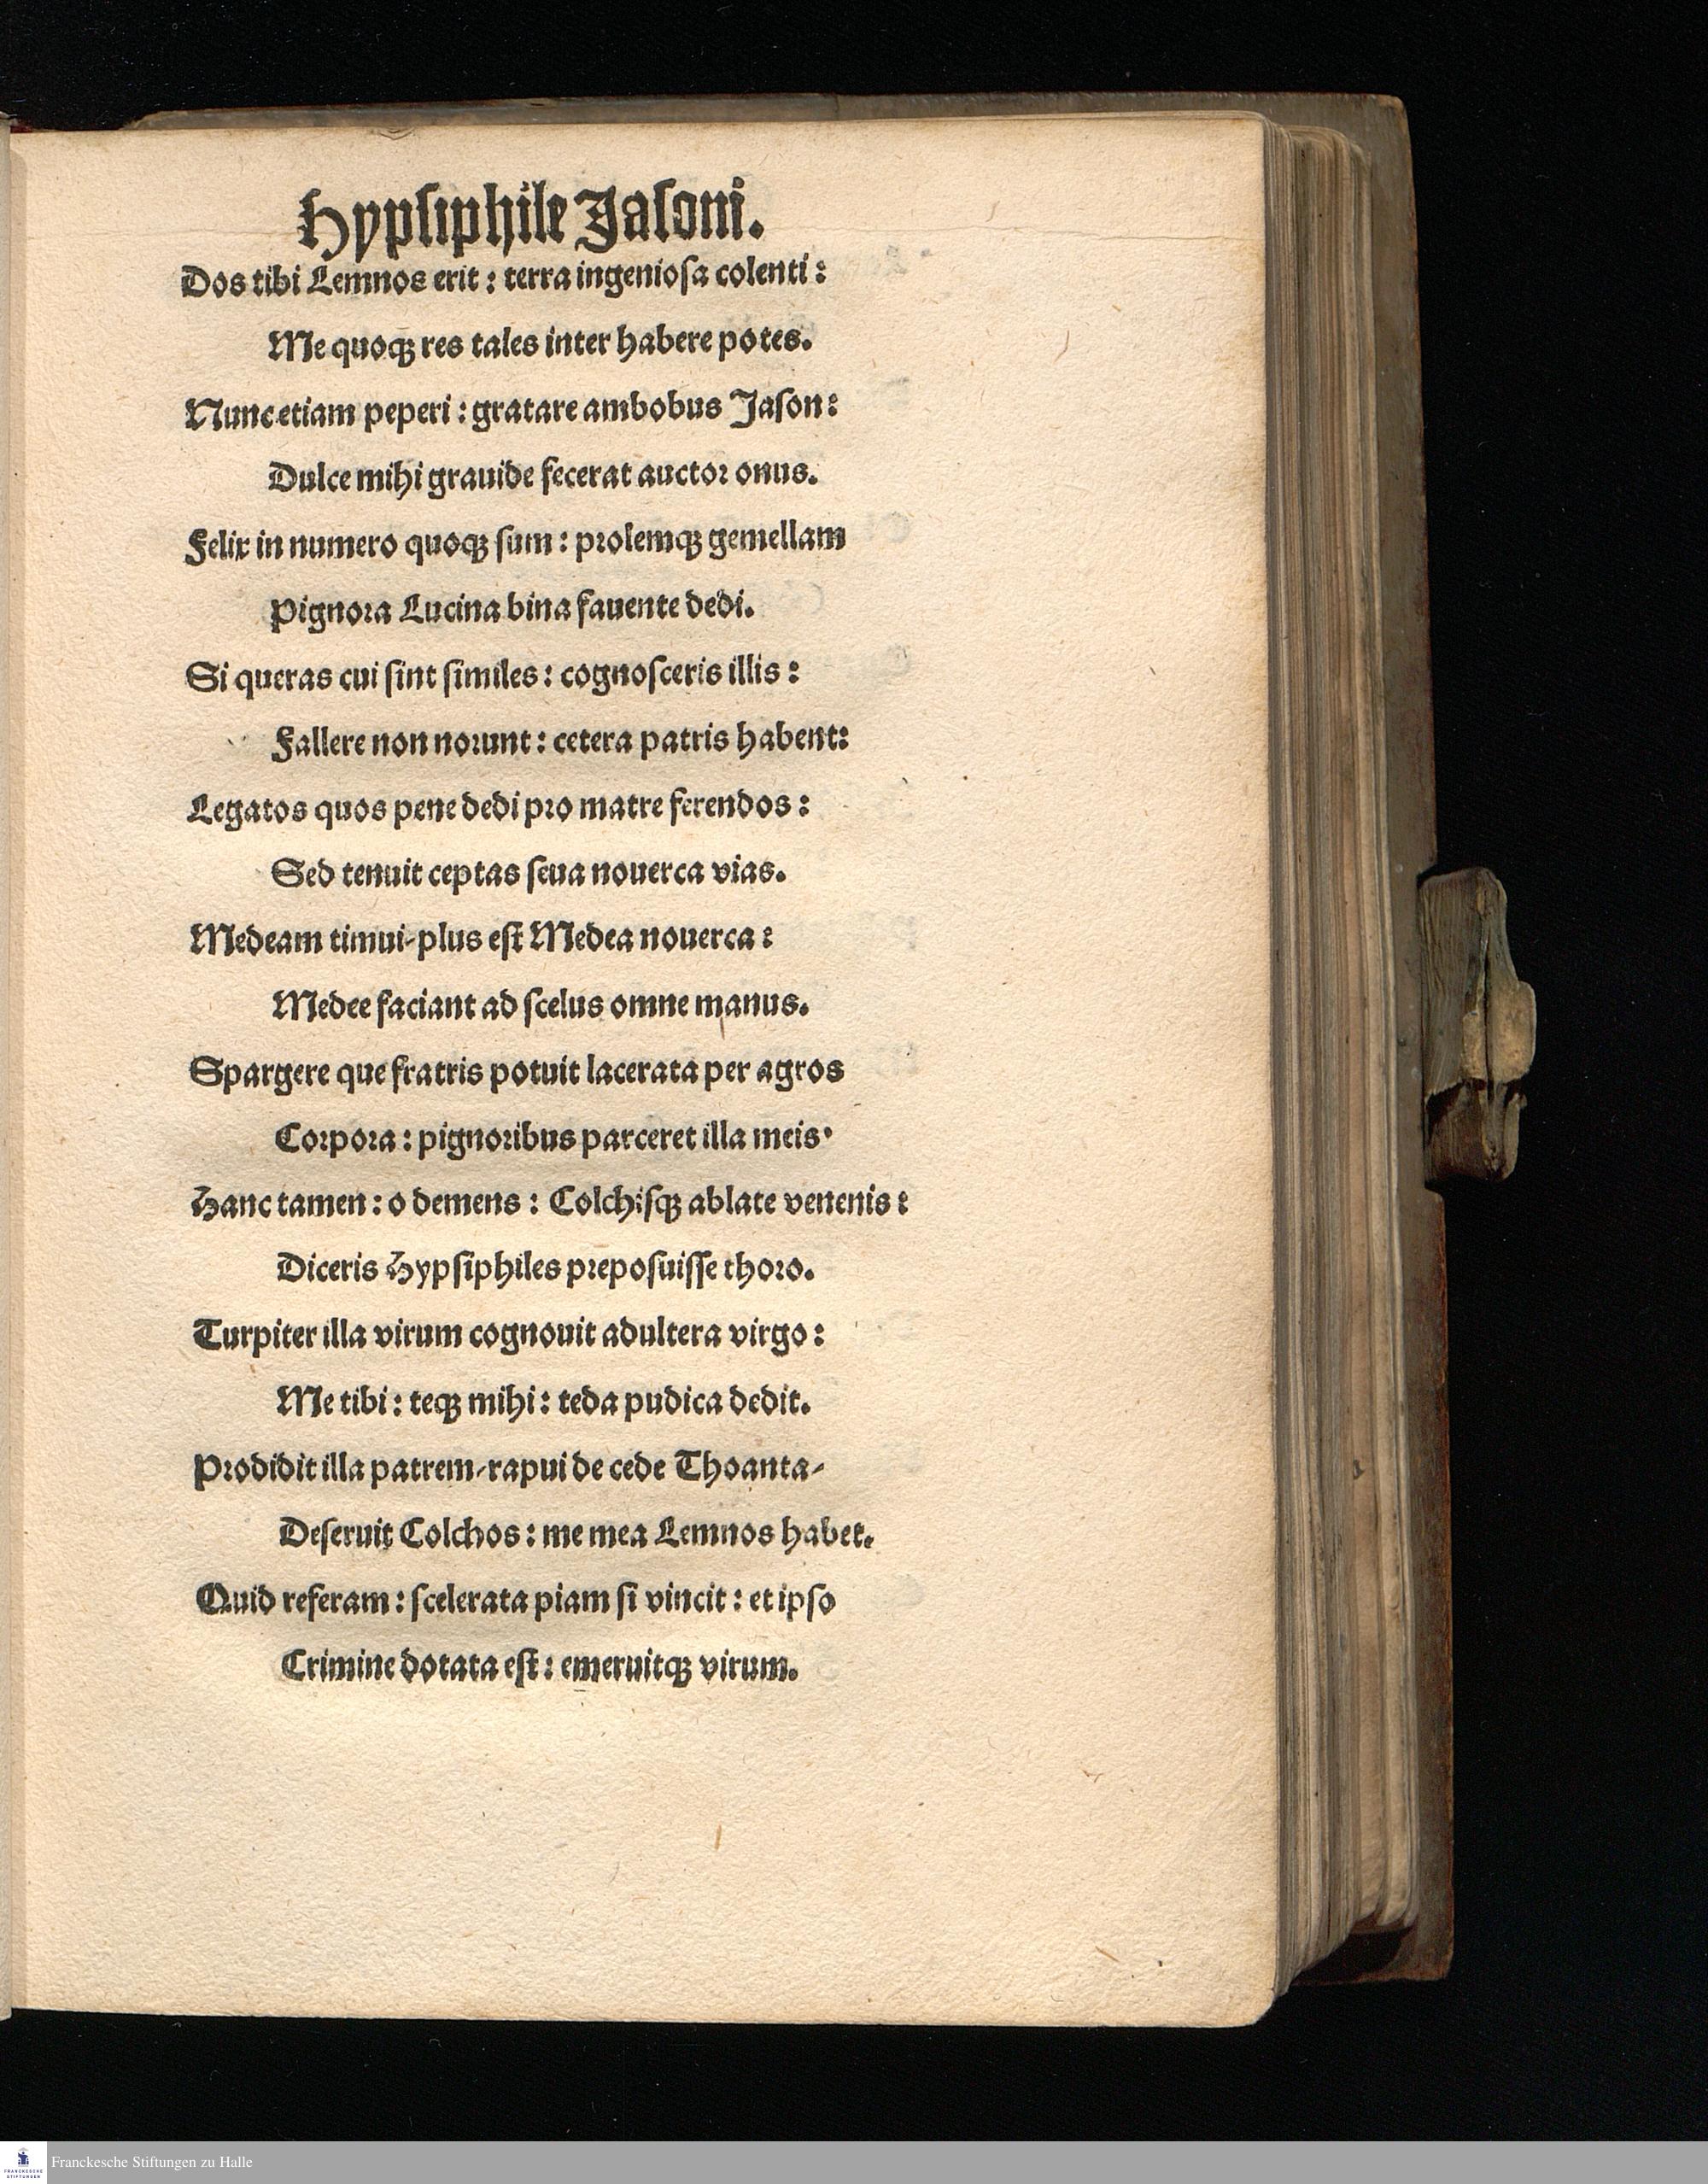 Hypsiphile Jasoni.
Dos tibi Lemnos erit : terra ingeniosa colenti :
Me quoqꝫ res tales inter habere potes.
Nunc etiam peperi : gratare ambobus Jason :
Dulce mihi grauide fecerat auctor onus.
Felix in numero quoqꝫ sum : prolemqꝫ gemellam
Pignora Lucina bina fauente dedi.
Si queras cui sint similes : cognosceris illis :
Fallere non norunt : cetera patris habent:
Legatos quos pene dedi pro matre ferendos :
Sed tenuit ceptas seua nouerca vias.
Medeam timui-plus est Medea nouerca :
Medee faciant ad scelus omne manus.
Spargere que fratris potuit lacerata per agros
Corpora : pignoribus parceret illa meis·
Hanc tamen : o demens : Colchisqꝫ ablate venenis :
Diceris Hypsiphiles preposuisse thoro.
Turpiter illa virum cognouit adultera virgo :
Me tibi : teqꝫ mihi : teda pudica dedit.
Prodidit illa patrem-rapui de cede Thoanta-
Deseruit Colchos : me mea Lemnos habet.
Quid referam : scelerata piam si vincit : et ipso
Crimine dotata est : emeruitqꝫ virum.
FRANCKESCHE
STIFTUNGEN
Franckesche Stiftungen zu Halle